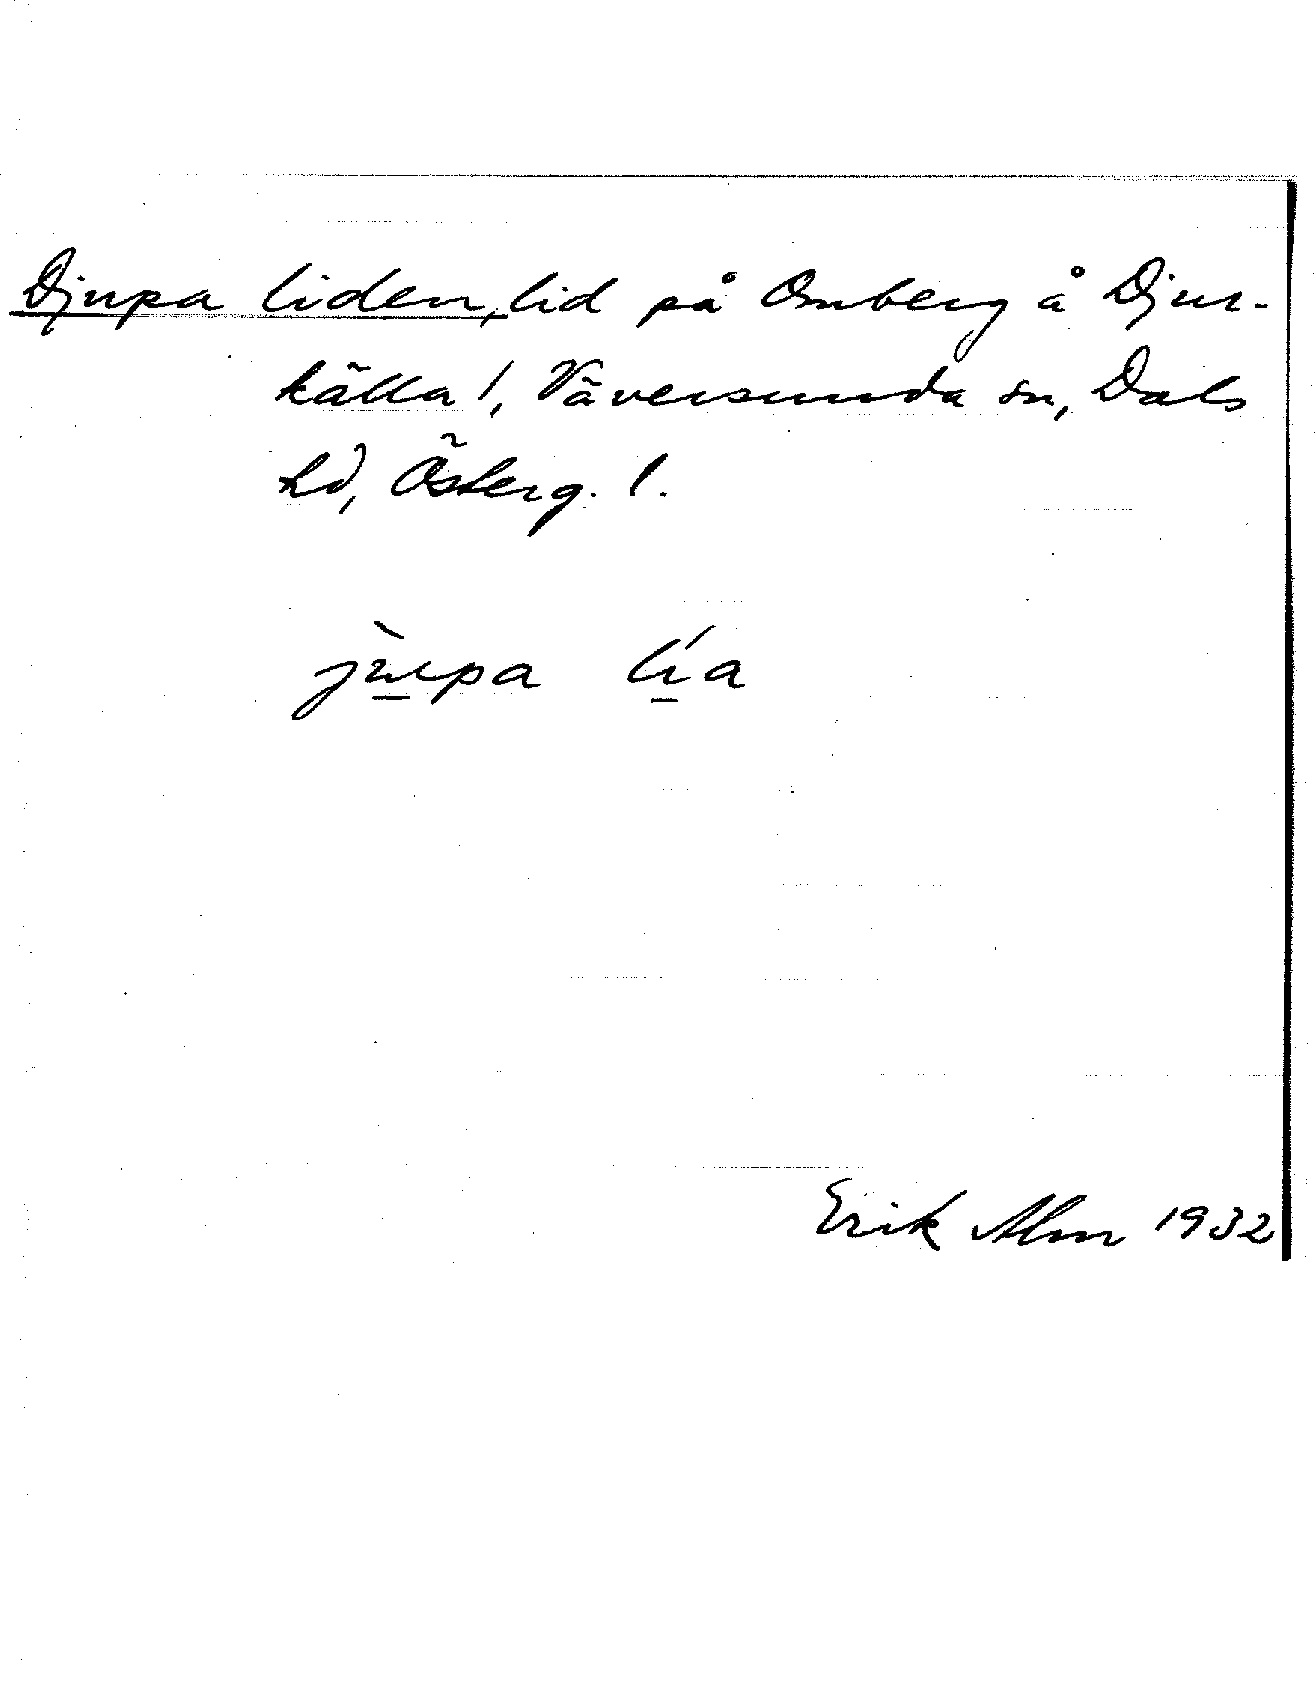 Djupa liden, lid på Omberg å Djur-
källa!, Väversunda sn, Dals
hd, Österg. l.
jùpa lía
Erik Alm 1932